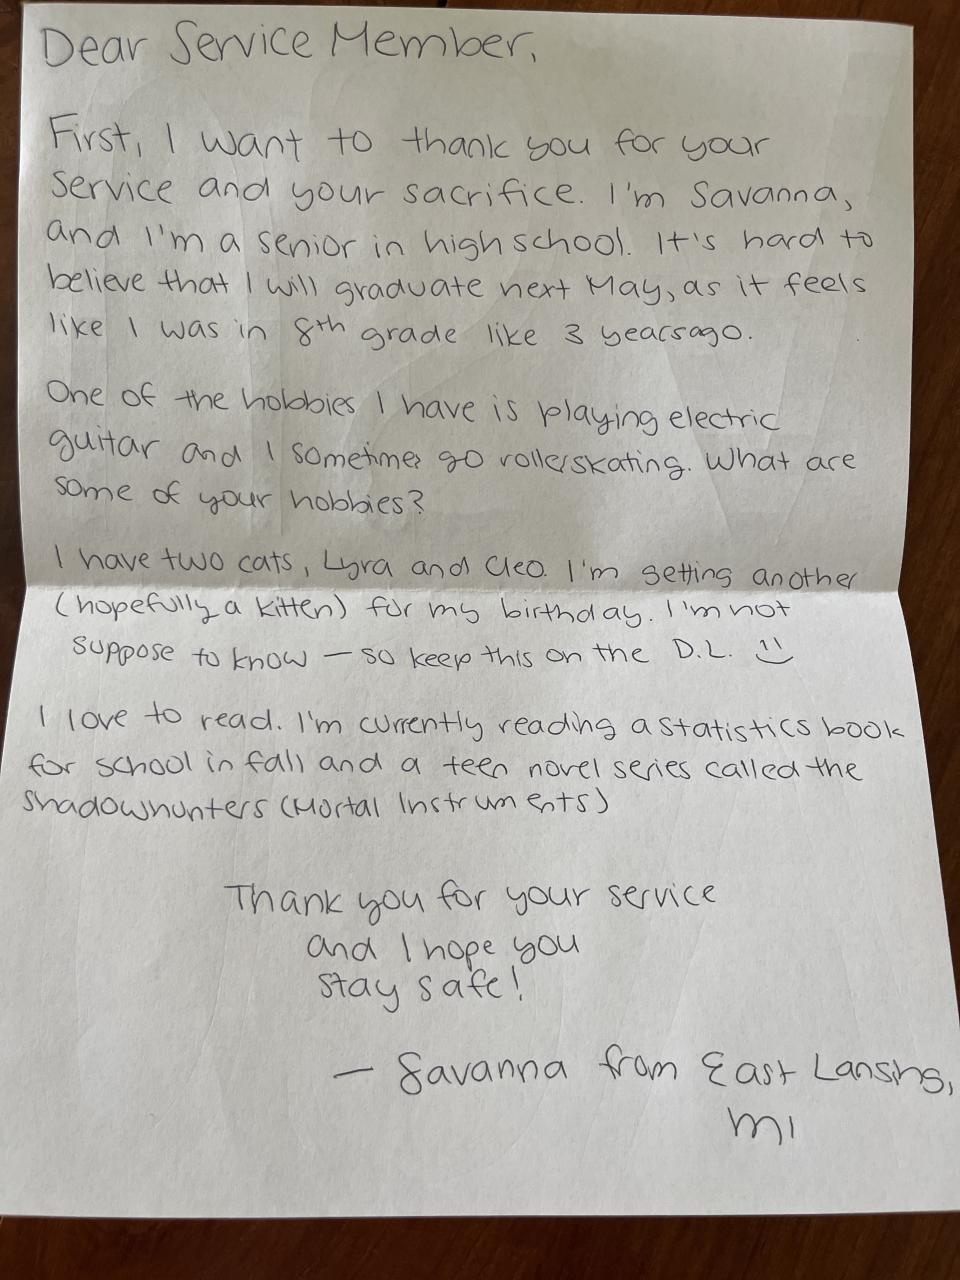 Dear Service Member,
First, I want to thank you for your
service and your sacrifice. I'm Savanna,
and I'm a senior in high school. It's hard to
believe that I will graduate next May, as it feels
like I was in 8th grade like 3 years ago.
One of the hobbies I have is playing electric
guitar and I sometimes go rollerskating. What are
some of your hobbies?
I have two cats, Lyra and Cleo. I'm getting another
(hopefully a kitten) for my birthday. I'm not
suppose to know - so keep this on the D.L. :)
I love to read. I'm currently reading a statistics book
for school in fall and a teen novel series called the
Shadowhunters (Mortal Instruments)
Thank you for your service
and I hope you
stay safe!
- Savanna from East Lansing,
MI